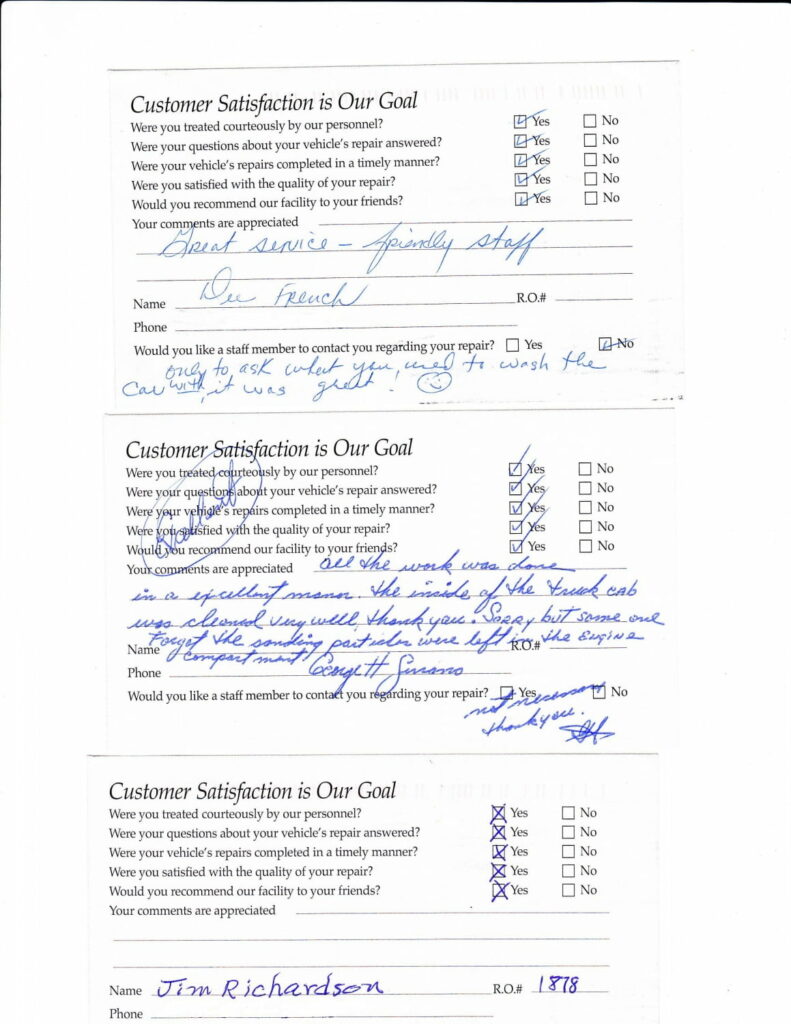 Customer Satisfaction is Our Goal
Were you treated courteously by our personnel? Yes No
Were your questions about your vehicle's repair answered? Yes No
Were your vehicle's repairs completed in a timely manner? Yes No
Were you satisfied with the quality of your repair? Yes No
Would you recommend our facility to your friends? Yes No
Your comments are appreciated
Great service - friendly staff
Name Dee French R.O.#
Phone
Would you like a staff member to contact you regarding your repair? Yes No
only to ask what you used to wash the
car with, it was great!
Customer Satisfaction is Our Goal
Were you treated courteously by our personnel? Yes No
Were your questions about your vehicle's repair answered? Yes No
Were your vehicle's repairs completed in a timely manner? Yes No
Were you satisfied with the quality of your repair? Yes No
Would you recommend our facility to your friends? Yes No
Your comments are appreciated all the work was done
in a excellent manor. the inside of the truck cab
was cleaned very well, thank you. Sorry but some one
Forgot the sanding particles were left in the engine
Name R.O.#
compartment
Phone George H
Would you like a staff member to contact you regarding your repair? Yes No
not necessary
thank you.
Customer Satisfaction is Our Goal
Were you treated courteously by our personnel? Yes No
Were your questions about your vehicle's repair answered? Yes No
Were your vehicle's repairs completed in a timely manner? Yes No
Were you satisfied with the quality of your repair? Yes No
Would you recommend our facility to your friends? Yes No
Your comments are appreciated
Name Jim Richardson R.O.# 1878
Phone